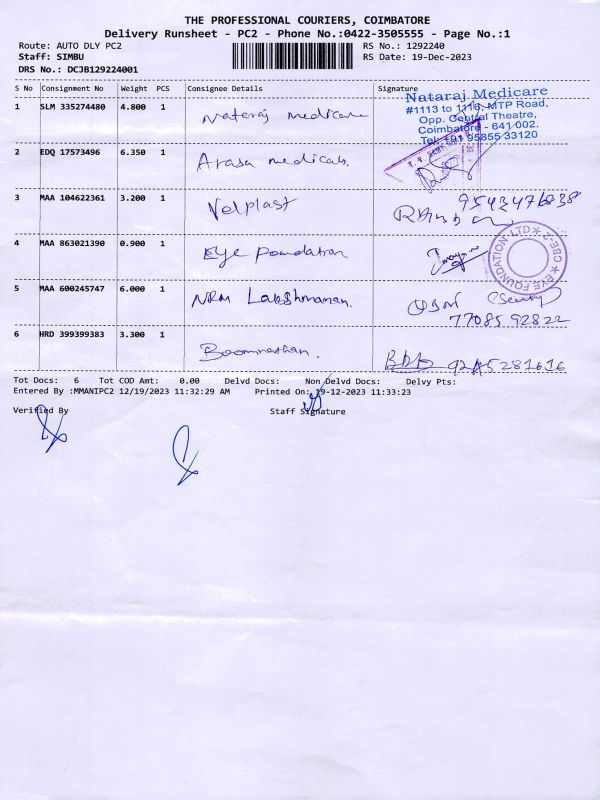 THE PROFESSIONAL COURIERS, COIMBATORE
Delivery Runsheet - PC2 - Phone No.:0422-3505555 - Page No.:1
Route: AUTO DLY PC2 RS No.: 1292240
Staff: SIMBU RS Date: 19-Dec-2023
DRS No.: DCJB129224001
S No Consignment No Weight PCS Consignee Details Signature
Nataraj Medicare
#1113 to 1116, MTP Road,
Opp. Central Theatre,
Coimbatore - 641 002.
Tel: +91 95855 33120
1 SLM 335274480 4.800 1 Nataraj medicare
2 EDQ 17573496 6.350 1 Arasa medicals.
3 MAA 104622361 3.200 1 Velplast 9543476838
4 MAA 863021390 0.900 1 Eye Foundation
EYE FOUNDATION LTD ★ CBE-2 ★
5 MAA 600245747 6.000 1 NRM Lakshmanan.
7708592822
6 HRD 399399383 3.300 1 Boomnathan.
Tot Docs: 6 Tot COD Amt: 0.00 Delvd Docs: Non Delvd Docs: Delvy Pts:
Entered By :MMANIPC2 12/19/2023 11:32:29 AM Printed On: 19-12-2023 11:33:23
Verified By Staff Signature